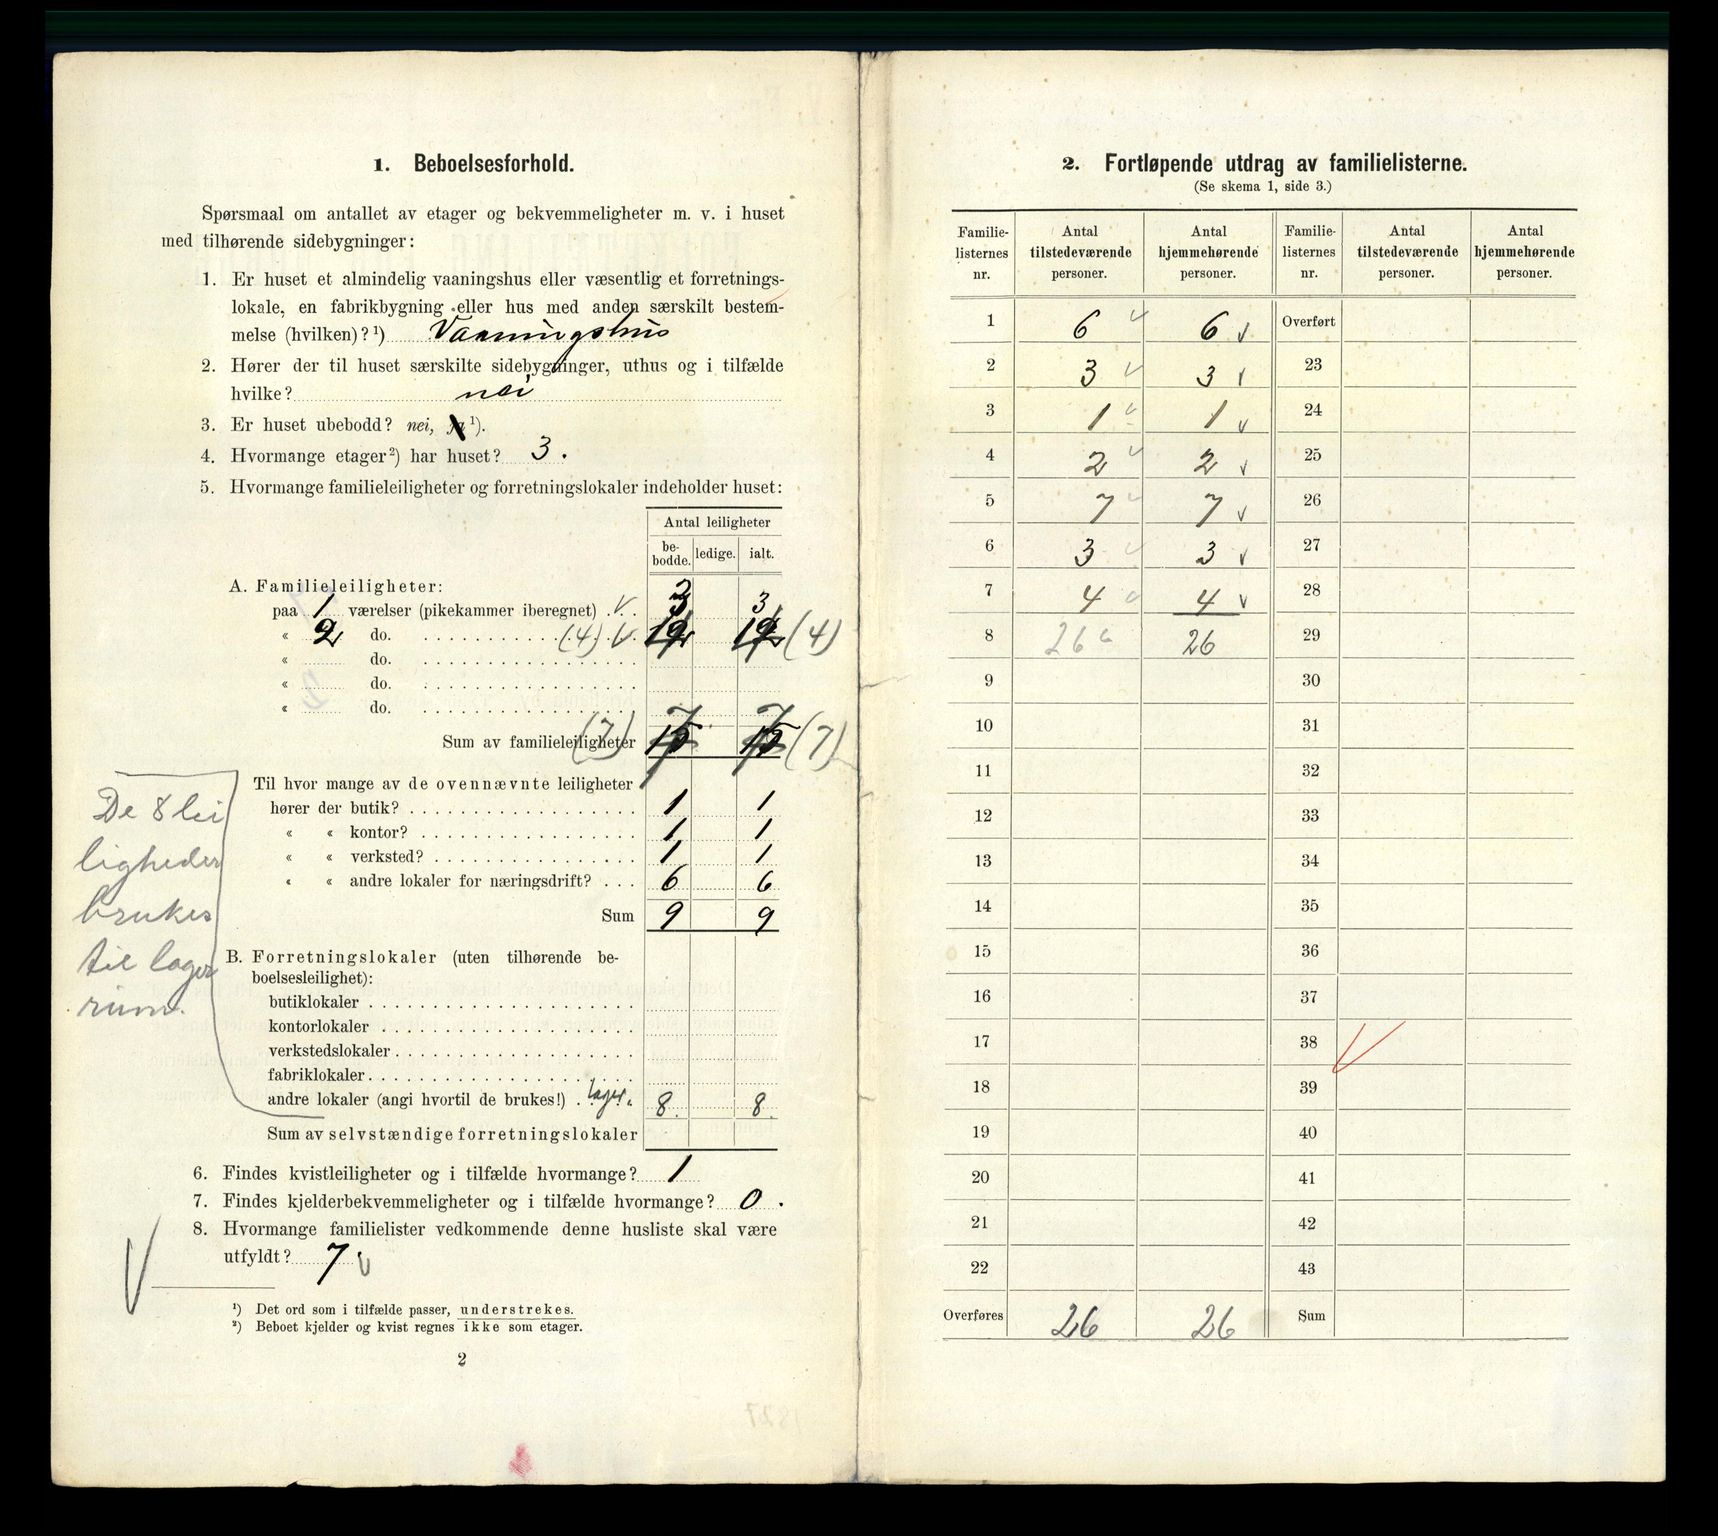 1. Beboelsesforhold.
Spørsmaal om antallet av etager og bekvemmeligheter m. v. i huset
med tilhørende sidebygninger:
1. Er huset et almindelig vaaningshus eller væsentlig et forretnings-
lokale, en fabrikbygning eller hus med anden særskilt bestem-
melse (hvilken)? ¹) Vaaningshus
2. Hører der til huset særskilte sidebygninger, uthus og i tilfælde
hvilke? nei
3. Er huset ubebodd? nei, ja ¹).
4. Hvormange etager ²) har huset? 3.
5. Hvormange familieleiligheter og forretningslokaler indeholder huset:
Antal leiligheter
be-bodde. ledige. ialt.
A. Familieleiligheter:
paa 1 værelser (pikekammer iberegnet) . V . 3 3
« 2 do. . . . . . . . . . . . (4) V. 12 12 (4)
« do. . . . . . . . . . . . . . . . .
« do. . . . . . . . . . . . . . . . .
« do. . . . . . . . . . . . . . . . .
7 7
Sum av familieleiligheter (7) 15 15 (7)
Til hvor mange av de ovennævnte leiligheter
hører der butik? . . . . . . . . . . . . . . . . 1 1
« « kontor? . . . . . . . . . . . . . . . 1 1
« « verksted? . . . . . . . . . . . . . . 1 1
« « andre lokaler for næringsdrift? . . . 6 6
Sum 9 9
De 8 lei
ligheder
brukes
til lager
rum.
B. Forretningslokaler (uten tilhørende be-
boelsesleilighet):
butiklokaler . . . . . . . . . . . . . . . . . .
kontorlokaler . . . . . . . . . . . . . . . . .
verkstedslokaler . . . . . . . . . . . . . . . .
fabriklokaler . . . . . . . . . . . . . . . . . .
andre lokaler (angi hvortil de brukes!) . lager. 8. 8.
Sum av selvstændige forretningslokaler
6. Findes kvistleiligheter og i tilfælde hvormange? 1
7. Findes kjelderbekvemmeligheter og i tilfælde hvormange? 0.
8. Hvormange familielister vedkommende denne husliste skal være
utfyldt? 7 V
V
¹) Det ord som i tilfælde passer, understrekes.
²) Beboet kjelder og kvist regnes ikke som etager.
2
2. Fortløpende utdrag av familielisterne.
(Se skema 1, side 3.)
Familie-listernes nr. Antal tilstedeværende personer. Antal hjemmehørende personer. Familie-listernes nr. Antal tilstedeværende personer. Antal hjemmehørende personer.
1 6 V 6 V Overført
2 3 V 3 V 23
3 1 V 1 V 24
4 2 V 2 V 25
5 7 V 7 V 26
6 3 V 3 V 27
7 4 V 4 V 28
8 26 V 26 29
9 30
10 31
11 32
12 33
13 34
14 35
15 36
16 37
17 38 V
18 39
19 40
20 41
21 42
22 43
Overføres 26 26 Sum